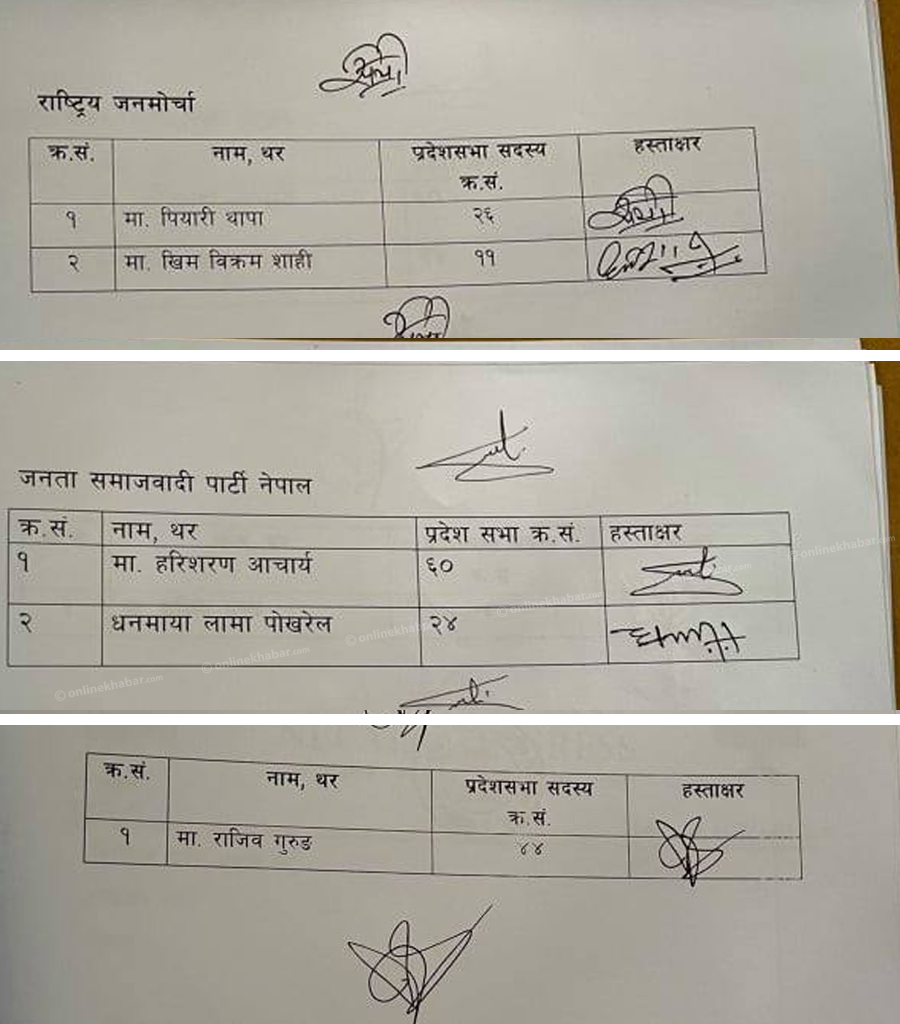 राष्ट्रिय जनमोर्चा
क्र.सं. नाम, थर प्रदेशसभा सदस्य क्र.सं. हस्ताक्षर
१ मा. पियारी थापा २६
२ मा. खिम विक्रम शाही ११
जनता समाजवादी पार्टी नेपाल
क्र.सं. नाम, थर प्रदेश सभा क्र.सं. हस्ताक्षर
१ मा. हरिशरण आचार्य ६०
२ धनमाया लामा पोखरेल २४
© onlinekhabar.com © onlinekhabar.com © onlinekhabar.com © onlinekhabar.com onlinekhabar.com
क्र.सं. नाम, थर प्रदेशसभा सदस्य क्र.सं. हस्ताक्षर
१ मा. राजिव गुरुङ ४४